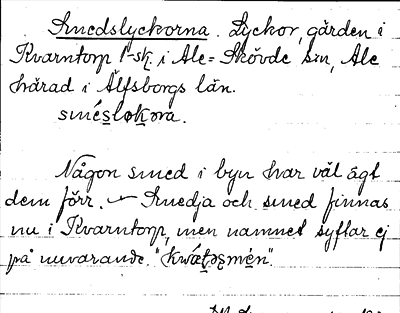 Smedslyckorna. Lyckor, gården i
Kvarntorp 1-sk. i Ale-Skövde sn, Ale
härad i Älfsborgs län.
smésləkəra.
Någon smed i byn har väl ägt
dem förr. — Smedja och smed finnas
nu i Kvarntorp, men namnet syftar ej
på nuvarande.